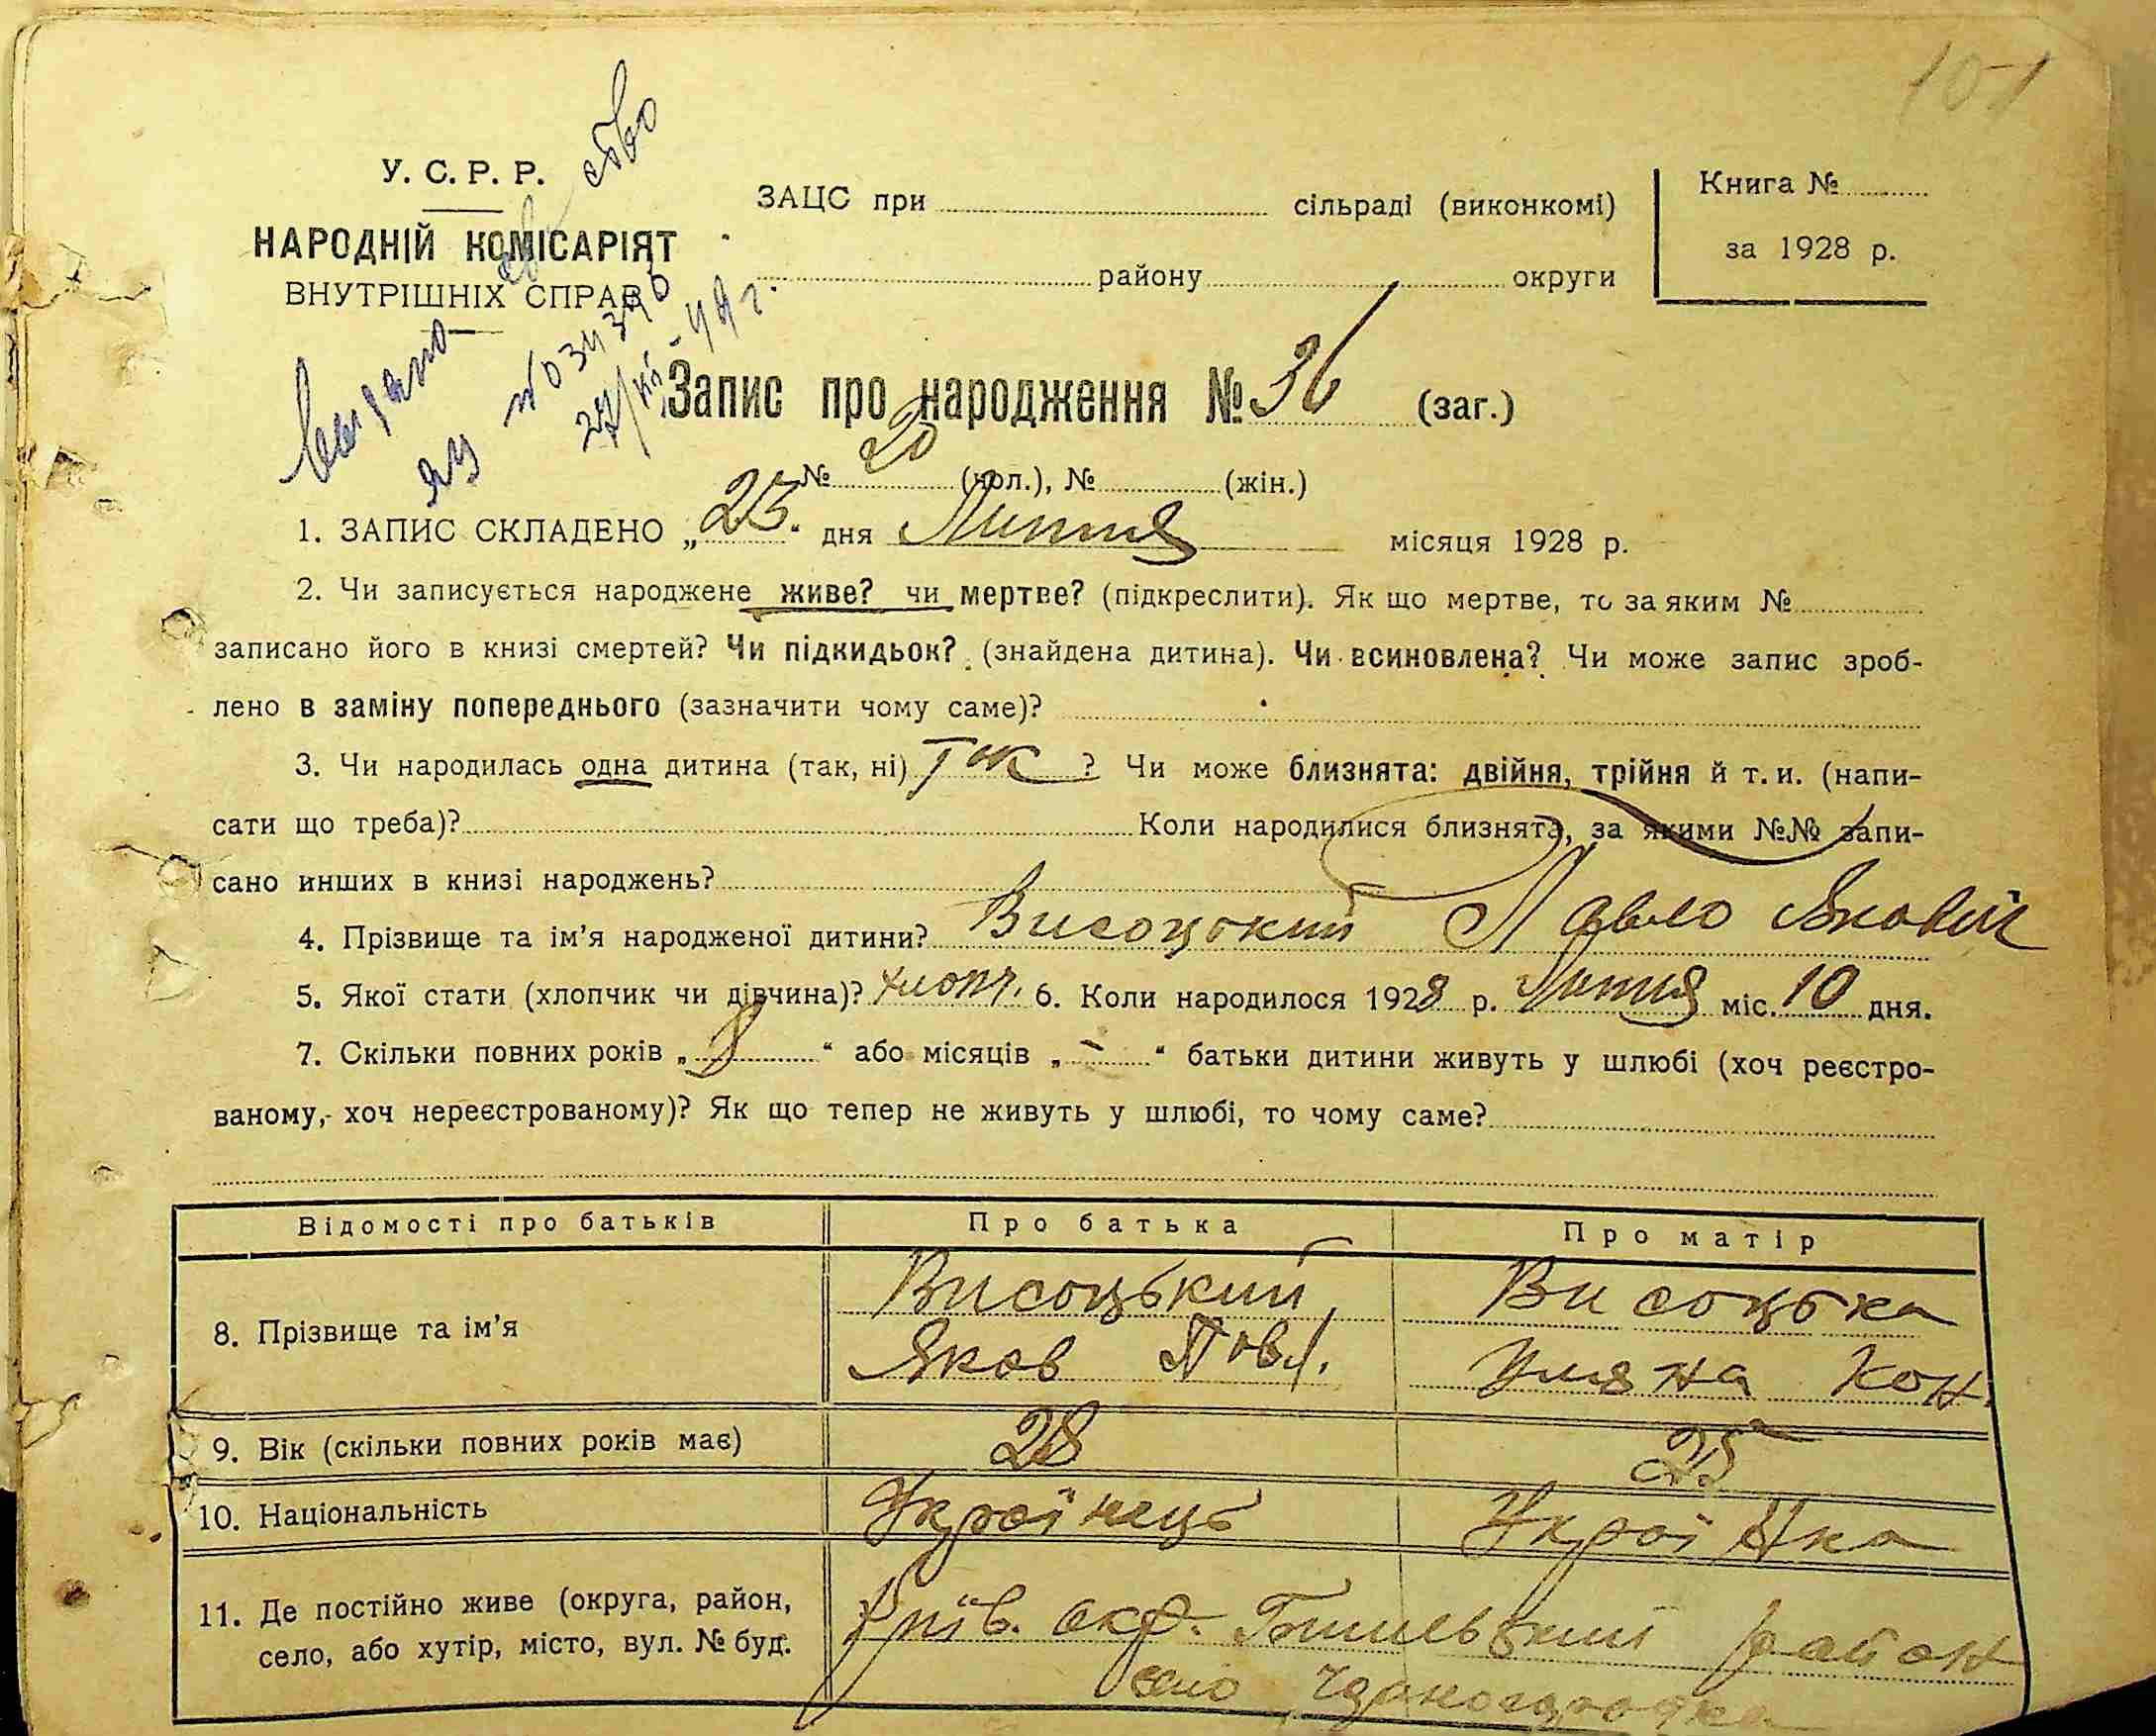 101
У. С. Р. Р.
НАРОДНІЙ КОМІСАРІЯТ
ВНУТРІШНІХ СПРАВ
ЗАЦС при сільраді (виконкомі)
району округи
Книга №
за 1928 р.
Выдано св-ство
ЯЦ №034390
Запис про народження № 36 (заг.)
№ 20 (чол.), № (жін.)
1. ЗАПИС СКЛАДЕНО „23.“ дня Липня місяця 1928 р.
2. Чи записується народжене живе? чи мертве? (підкреслити). Як що мертве, то за яким №
записано його в книзі смертей? Чи підкидьок? (знайдена дитина). Чи всиновлена? Чи може запис зроб-
лено в заміну попереднього (зазначити чому саме)?
3. Чи народилась одна дитина (так, ні) Так ? Чи може близнята: двійня, трійня й т. и. (напи-
сати що треба)? Коли народилися близнята, за якими №№ запи-
сано инших в книзі народжень?
4. Прізвище та ім'я народженої дитини? Висоцький Павло Яковий
5. Якої стати (хлопчик чи дівчина)? хлопч. 6. Коли народилося 1928 р. Липня міс. 10 дня.
7. Скільки повних років „8“ або місяців „-“ батьки дитини живуть у шлюбі (хоч реєстро-
ваному, хоч нереєстрованому)? Як що тепер не живуть у шлюбі, то чому саме?
Відомості про батьків Про батька Про матір
8. Прізвище та ім'я
Висоцький
Яков Павл.
Висоцька
Уляна Кон.
9. Вік (скільки повних років має) 28 25
10. Національність Українець Українка
11. Де постійно живе (округа, район,
село, або хутір, місто, вул. № буд.
Київ. окр. Бишевський район
село